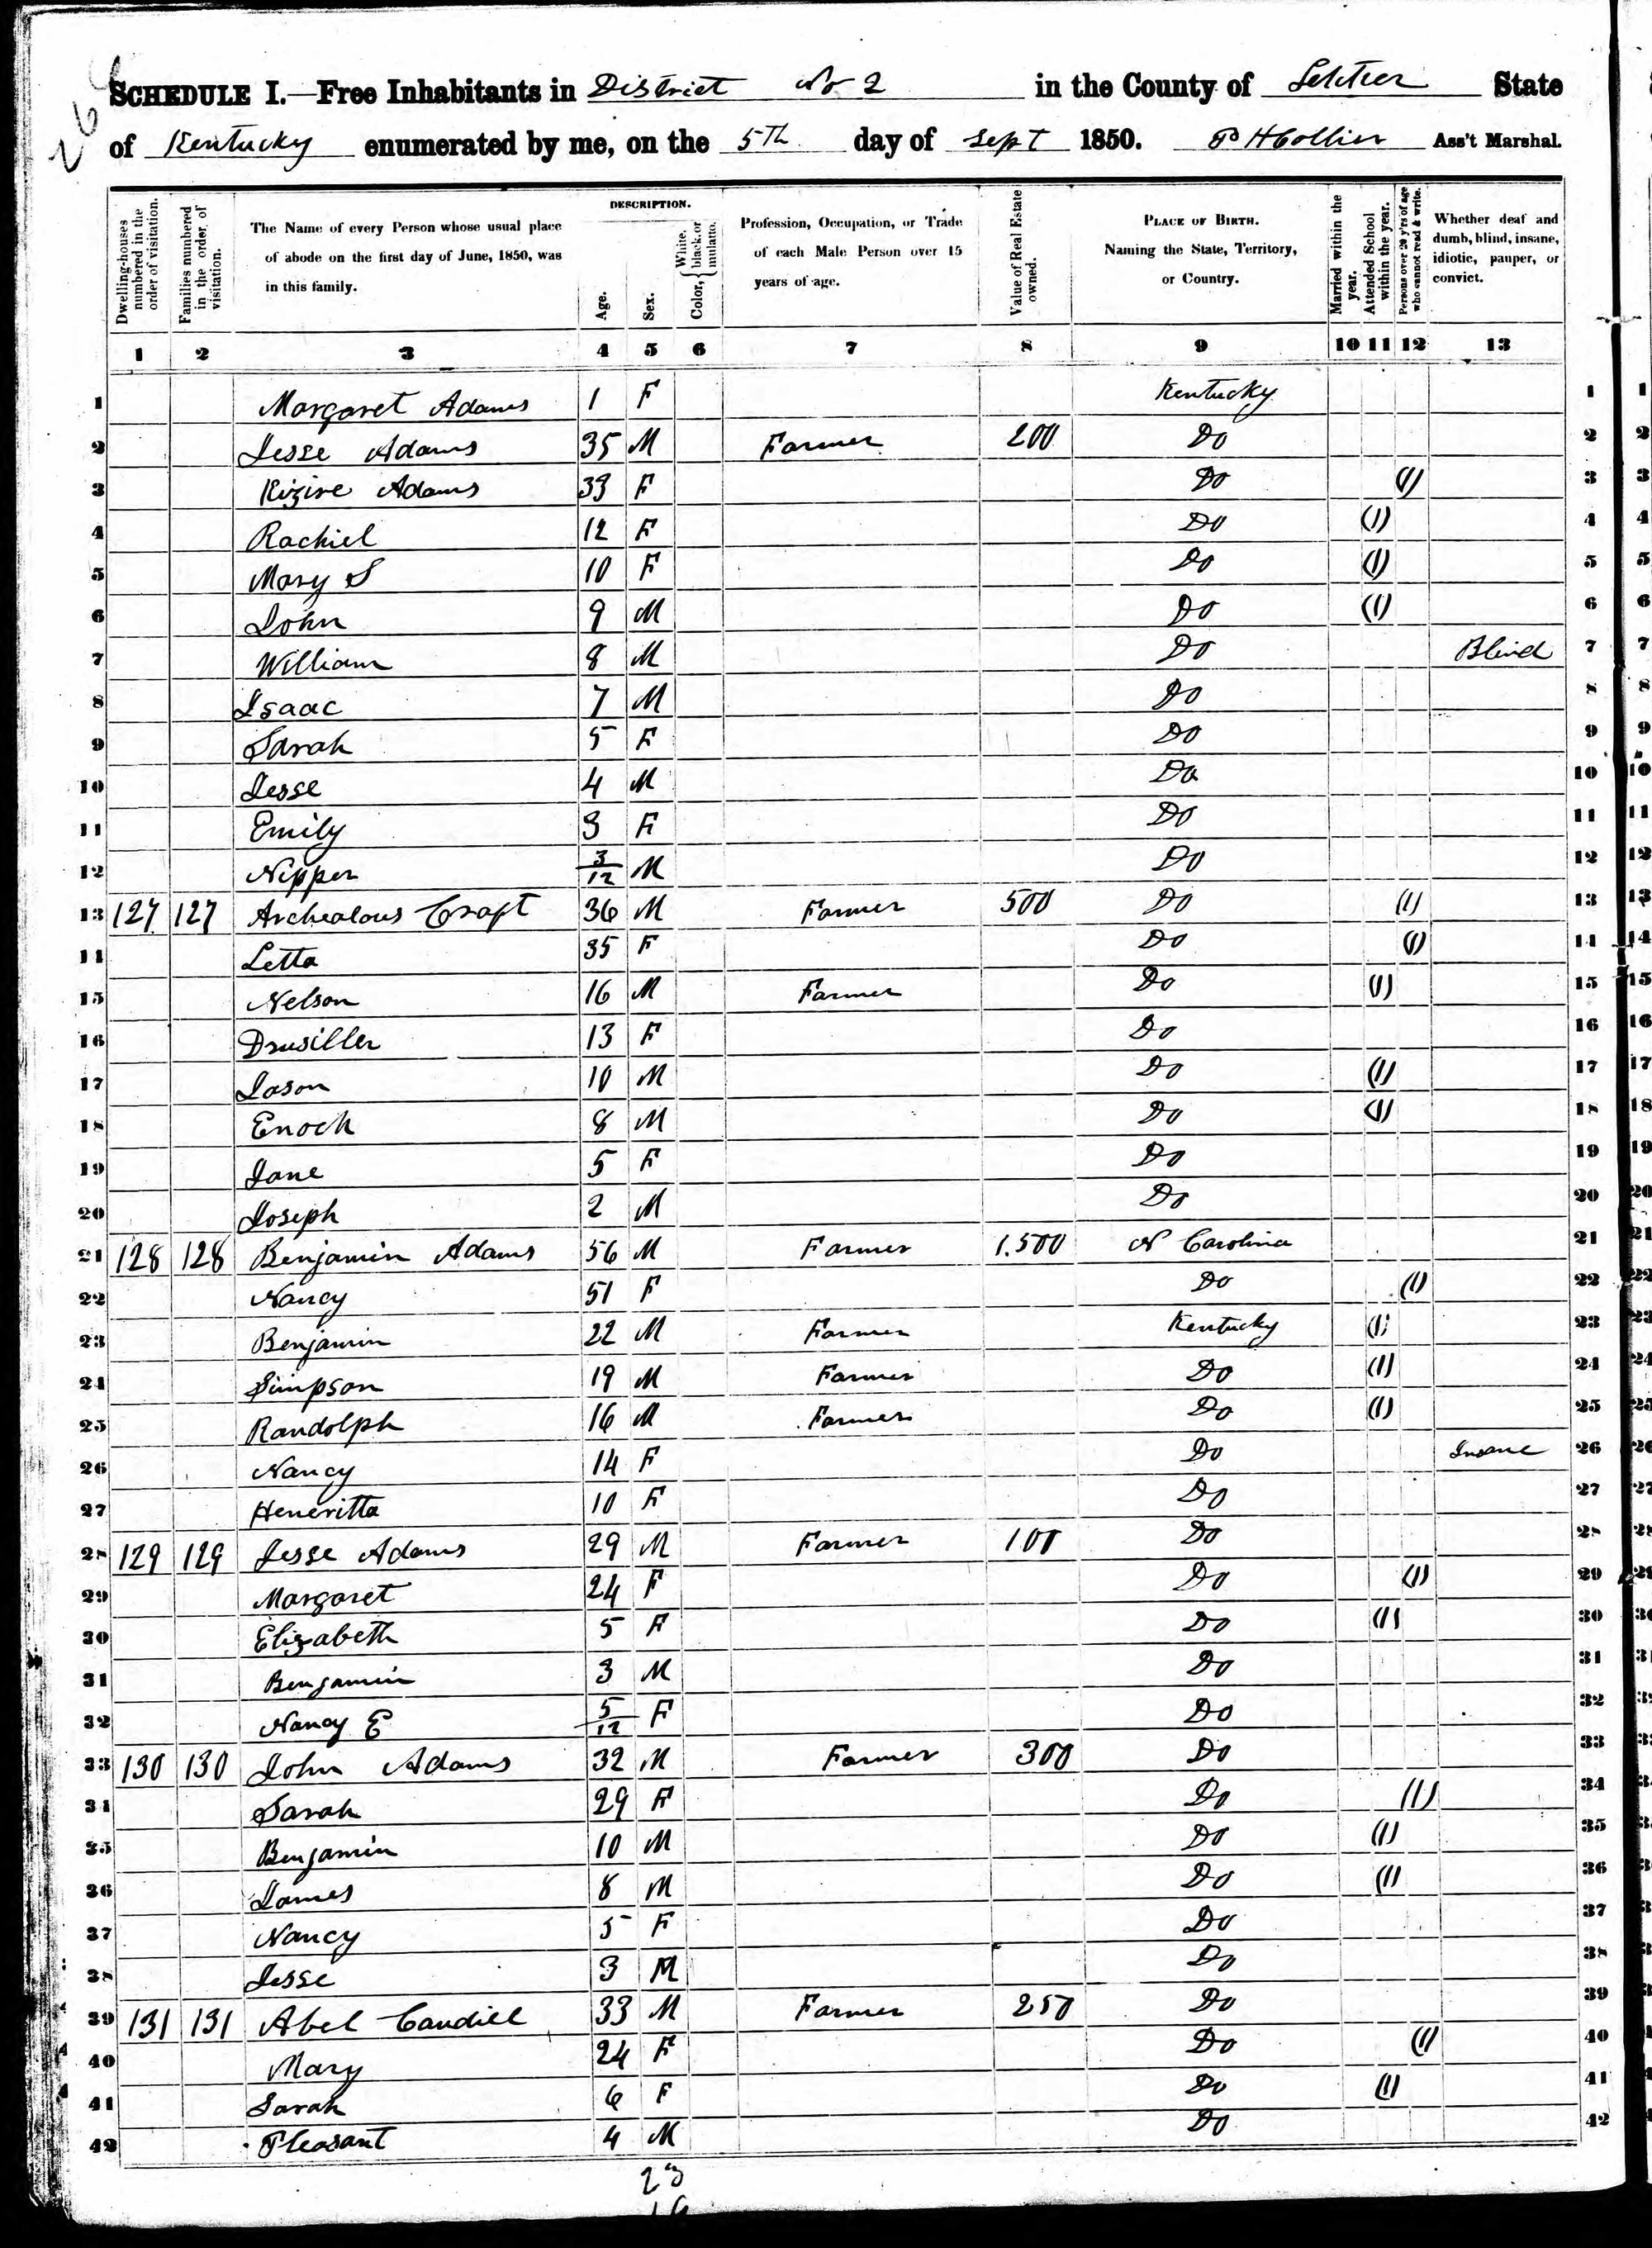 266
SCHEDULE I.—Free Inhabitants in District No 2 in the County of Letcher State
of Kentucky enumerated by me, on the 5th day of Sept 1850. P H Collier Ass't Marshal.
Dwelling-houses numbered in the order of visitation.
Families numbered in the order of visitation.
The Name of every Person whose usual place of abode on the first day of June, 1850, was in this family.
DESCRIPTION.
Age.
Sex.
Color, { White, black, or mulatto.
Profession, Occupation, or Trade of each Male Person over 15 years of age.
Value of Real Estate owned.
PLACE OF BIRTH. Naming the State, Territory, or Country.
Married within the year.
Attended School within the year.
Persons over 20 y'rs of age who cannot read & write.
Whether deaf and dumb, blind, insane, idiotic, pauper, or convict.
1 2 3 4 5 6 7 8 9 10 11 12 13
1 Margaret Adams 1 F Kentucky 1
2 Jesse Adams 35 M Farmer 200 Do 2
3 Kizire Adams 33 F Do (1) 3
4 Rachiel 12 F Do (1) 4
5 Mary S 10 F Do (1) 5
6 John 9 M Do (1) 6
7 William 8 M Do Blind 7
8 Isaac 7 M Do 8
9 Sarah 5 F Do 9
10 Jesse 4 M Do 10
11 Emily 3 F Do 11
12 Nipper 3/12 M Do 12
13 127 127 Archealous Craft 36 M Farmer 500 Do (1) 13
14 Letta 35 F Do (1) 14
15 Nelson 16 M Farmer Do (1) 15
16 Drusiller 13 F Do 16
17 Jason 10 M Do (1) 17
18 Enoch 8 M Do (1) 18
19 Jane 5 F Do 19
20 Joseph 2 M Do 20
21 128 128 Benjamin Adams 56 M Farmer 1.500 N Carolina 21
22 Nancy 51 F Do (1) 22
23 Benjamin 22 M Farmer Kentucky (1) 23
24 Simpson 19 M Farmer Do (1) 24
25 Randolph 16 M Farmer Do (1) 25
26 Nancy 14 F Do Insane 26
27 Heneritta 10 F Do 27
28 129 129 Jesse Adams 29 M Farmer 100 Do 28
29 Margaret 24 F Do (1) 29
30 Elizabeth 5 F Do (1) 30
31 Benjamin 3 M Do 31
32 Nancy E 5/12 F Do 32
33 130 130 John Adams 32 M Farmer 300 Do 33
34 Sarah 29 F Do (1) 34
35 Benjamin 10 M Do (1) 35
36 James 8 M Do (1) 36
37 Nancy 5 F Do 37
38 Jesse 3 M Do 38
39 131 131 Abel Caudill 33 M Farmer 250 Do 39
40 Mary 24 F Do (1) 40
41 Sarah 6 F Do (1) 41
42 Pleasant 4 M Do 42
23